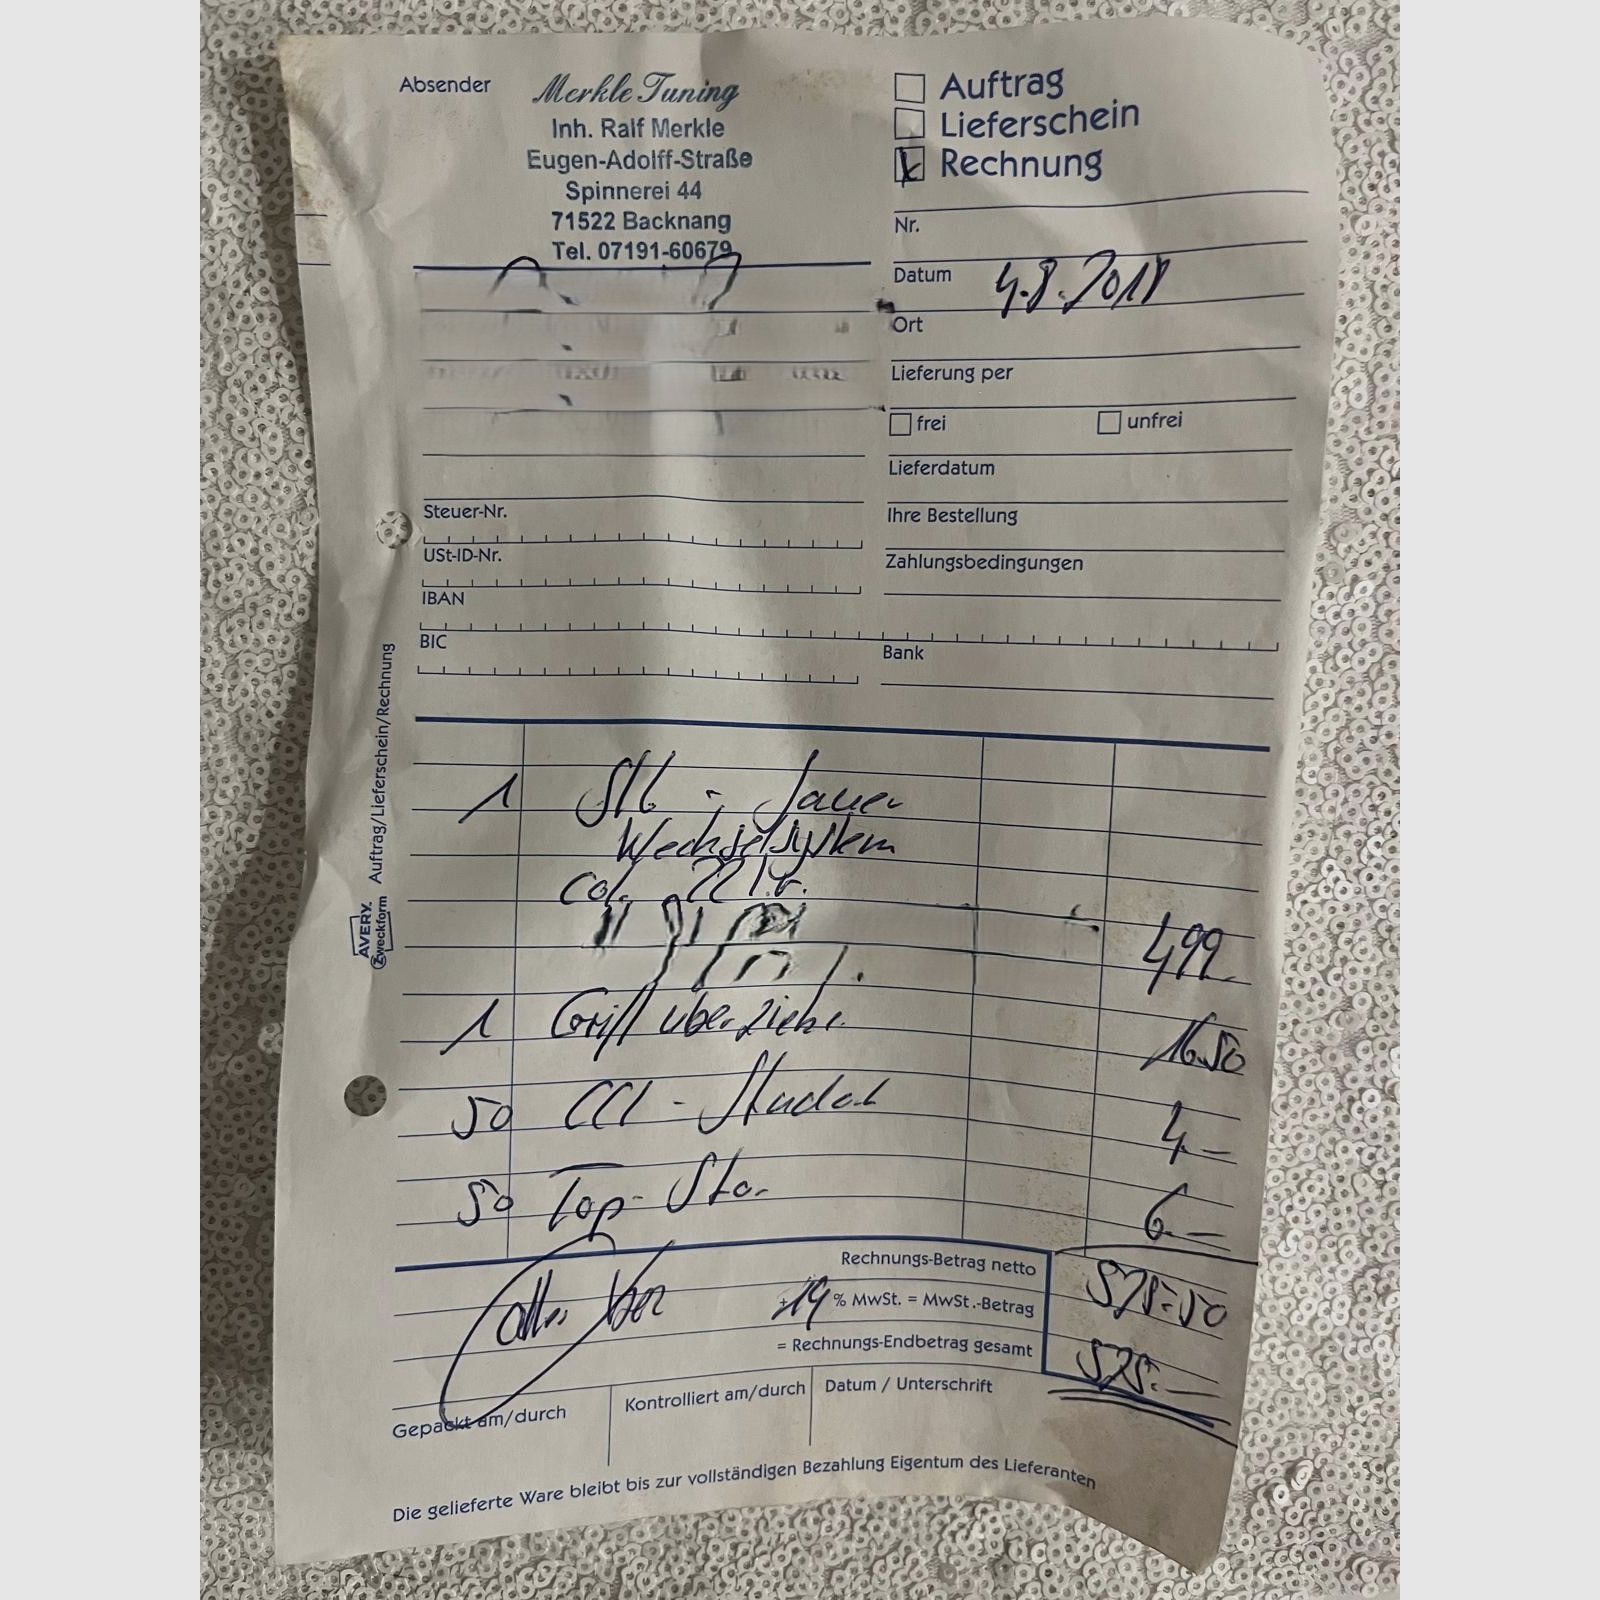 Absender
Merkle Tuning
Inh. Ralf Merkle
Eugen-Adolff-Straße
Spinnerei 44
71522 Backnang
Tel. 07191-60679
Auftrag
Lieferschein
Rechnung
Nr.
Datum 4.8.2018
Ort
Lieferung per
frei unfrei
Lieferdatum
Ihre Bestellung
Zahlungsbedingungen
Steuer-Nr.
USt-ID-Nr.
IBAN
BIC
Bank
AVERY Zweckform Auftrag/Lieferschein/Rechnung
1 - Sauer
Wechselsystem
cal. 22 l.r.
499.-
1 Griff überziehe. 16.50
50 CCI - 4.-
50 Top- Sta. 6.-
Rechnungs-Betrag netto
+19 % MwSt. = MwSt.-Betrag
= Rechnungs-Endbetrag gesamt 525.-
Gepackt am/durch
Kontrolliert am/durch
Datum / Unterschrift
Die gelieferte Ware bleibt bis zur vollständigen Bezahlung Eigentum des Lieferanten